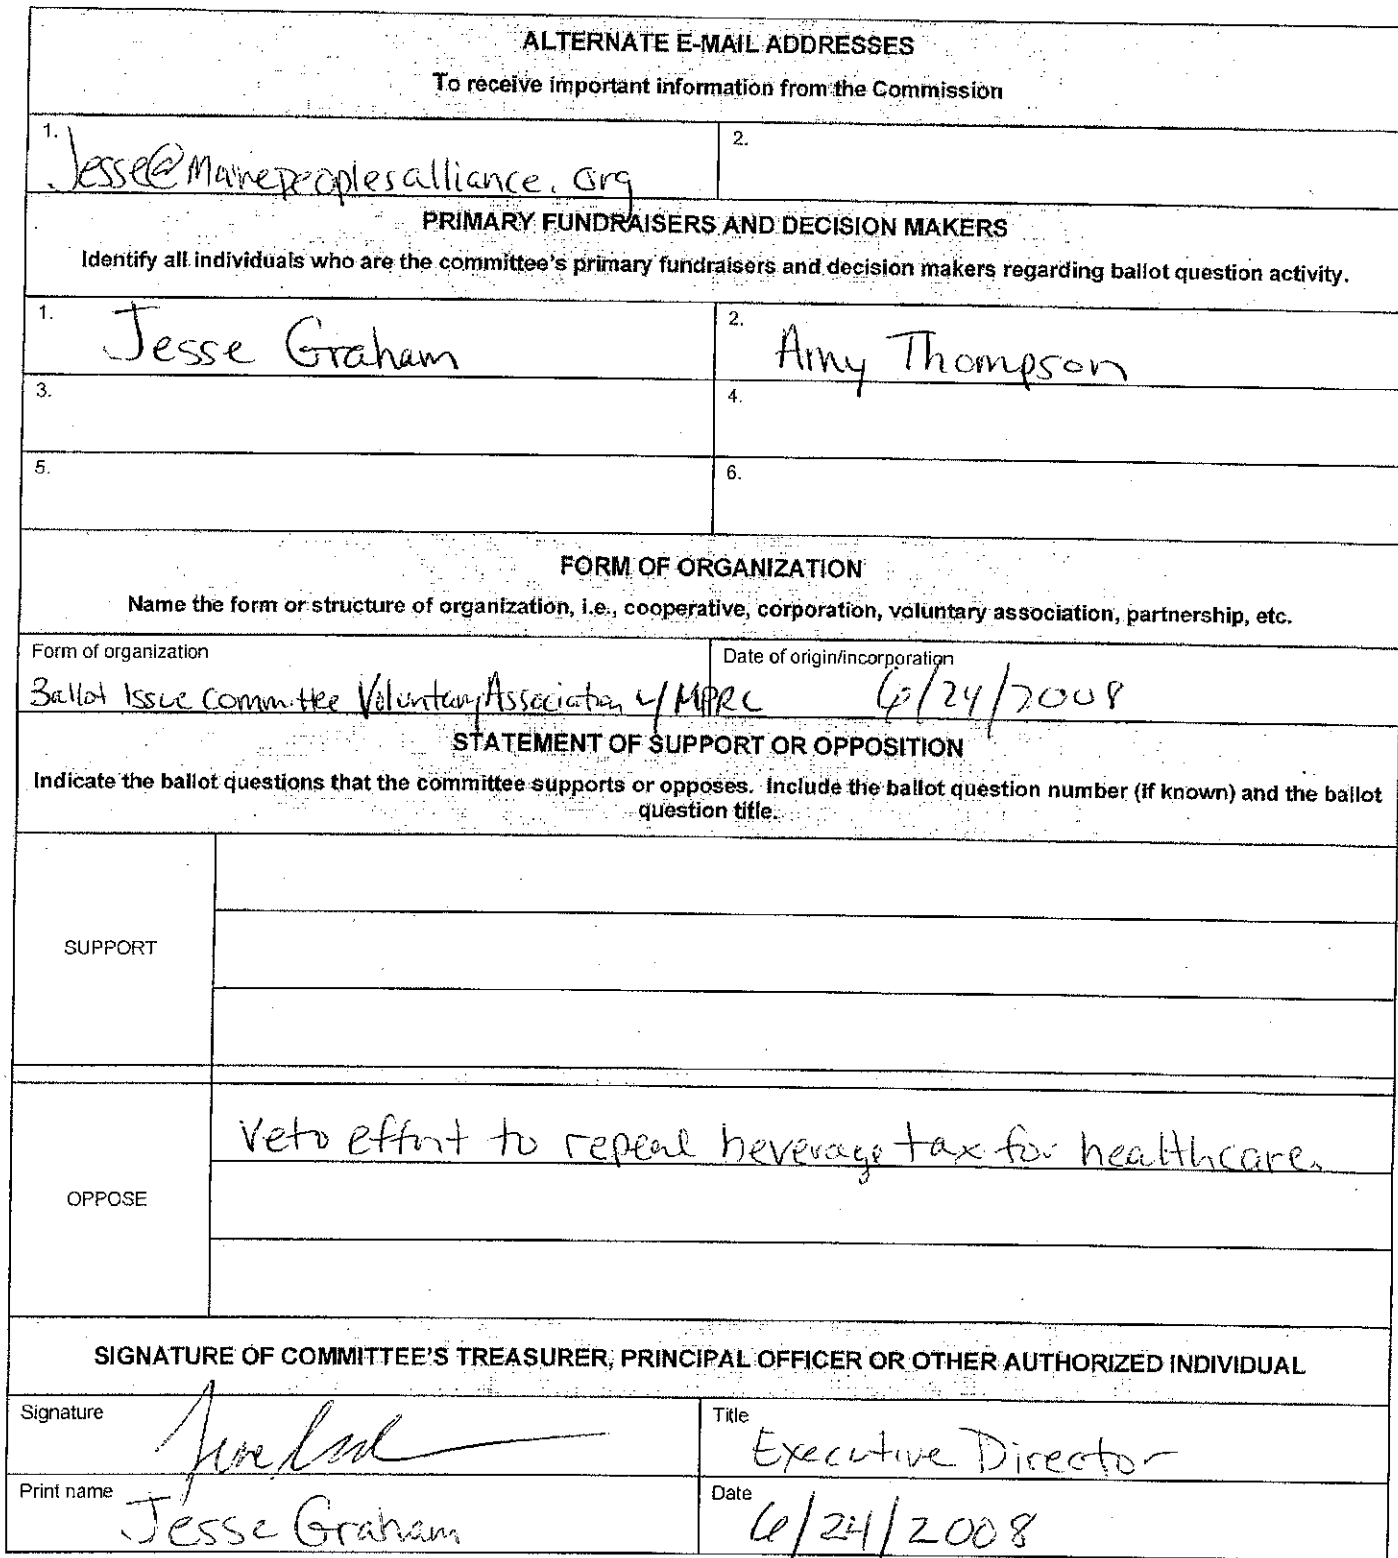 ALTERNATE E-MAIL ADDRESSES
To receive important information from the Commission
1. Jesse@Mainepeoplesalliance.org
2.
PRIMARY FUNDRAISERS AND DECISION MAKERS
Identify all individuals who are the committee's primary fundraisers and decision makers regarding ballot question activity.
1. Jesse Graham
2. Amy Thompson
3.
4.
5.
6.
FORM OF ORGANIZATION
Name the form or structure of organization, i.e., cooperative, corporation, voluntary association, partnership, etc.
Form of organization
Ballot Issue Committee Voluntary Association w/ MPRC
Date of origin/incorporation
6/24/2008
STATEMENT OF SUPPORT OR OPPOSITION
Indicate the ballot questions that the committee supports or opposes. Include the ballot question number (if known) and the ballot
question title.
SUPPORT
OPPOSE
Veto effort to repeal beverage tax for healthcare.
SIGNATURE OF COMMITTEE'S TREASURER, PRINCIPAL OFFICER OR OTHER AUTHORIZED INDIVIDUAL
Signature
Title
Executive Director
Print name
Jesse Graham
Date
6/24/2008